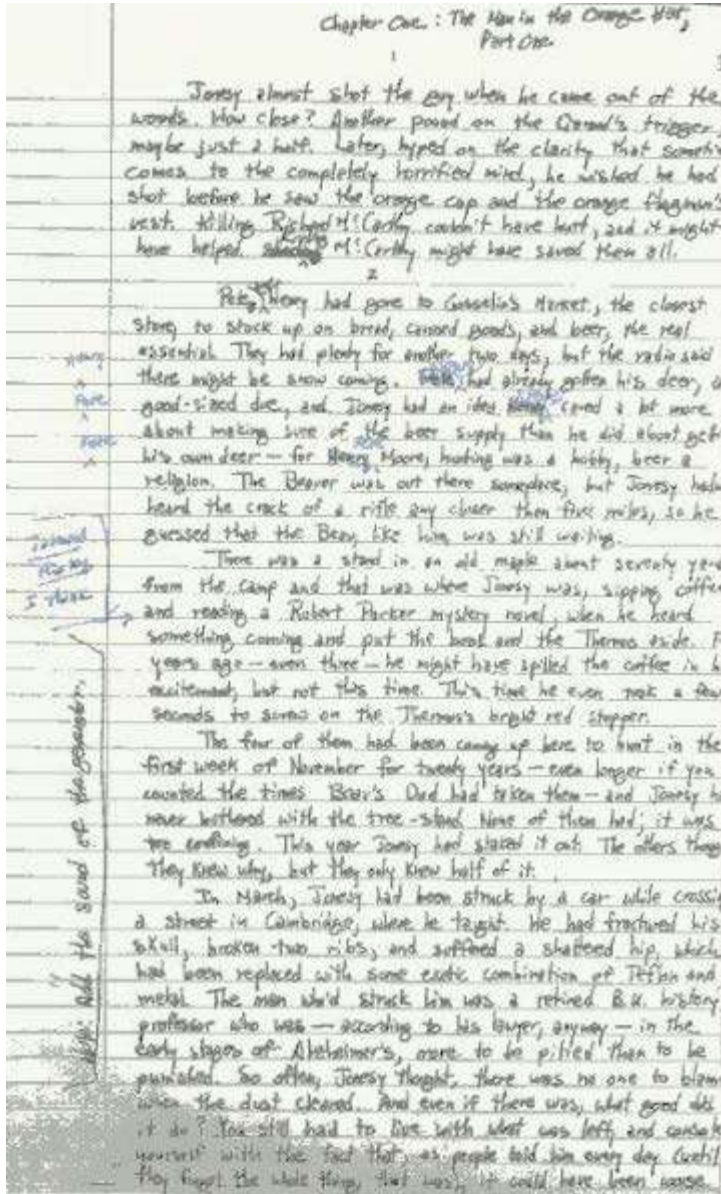 Chapter One : The Man in the Orange Hat,
Part One.
1
Jonesy almost shot the guy when he came out of the
woods. How close? Another pound on the Garand's trigger
maybe just a half. Later, hyped on the clarity that someti
comes to the completely horrified mind, he wished he had
shot before he saw the orange cap and the orange flagman's
vest. Killing Richard McCarthy couldn't have hurt, and it might
have helped. McCarthy might have saved them all.
2
Pete Henry had gone to Gosselin's Market, the closest
store, to stock up on bread, canned goods, and beer, the real
essential. They had plenty for another two days, but the radio said
there might be snow coming. had already gotten his deer, a
good-sized doe, and Jonesy had an idea cared a lot more
about making sure of the beer supply than he did about gett
his own deer — for Moore, hunting was a hobby, beer a
religion. The Beaver was out there someplace, but Jonesy hadn
heard the crack of a rifle any closer than five miles, so he
guessed that the Beav, like him, was still waiting.
There was a stand in an old maple about seventy yard
from the camp and that was where Jonesy was, sipping coffee
and reading a Robert Parker mystery novel, when he heard
something coming and put the book and the Thermos aside. F
years ago — even three — he might have spilled the coffee in h
excitement, but not this time. This time he even took a few
seconds to screw on the Thermos's bright red stopper.
The four of them had been coming up here to hunt in the
first week of November for twenty years — even longer if you
counted the times Beav's Dad had taken them — and Jonesy h
never bothered with the tree-stand. None of them had; it was
too confining. This year Jonesy had staked it out. The others thoug
They knew why, but they only knew half of it.
In March, Jonesy had been struck by a car while crossin
a street in Cambridge, where he taught. He had fractured his
skull, broken two ribs, and suffered a shattered hip, which
had been replaced with some exotic combination of Teflon and
metal. The man who'd struck him was a retired B.U. history
professor who was — according to his lawyer, anyway — in the
early stages of Alzheimer's, more to be pitied than to be
punished. So often, Jonesy thought, there was no one to blame
when the dust cleared. And even if there was, what good did
it do? You still had to live with what was left, and console
yourself with the fact that, as people told him every day (until
they forgot the whole thing, that was), it could have been worse.
Henry
Pete
Pete
I think
Add the sound of the generator.